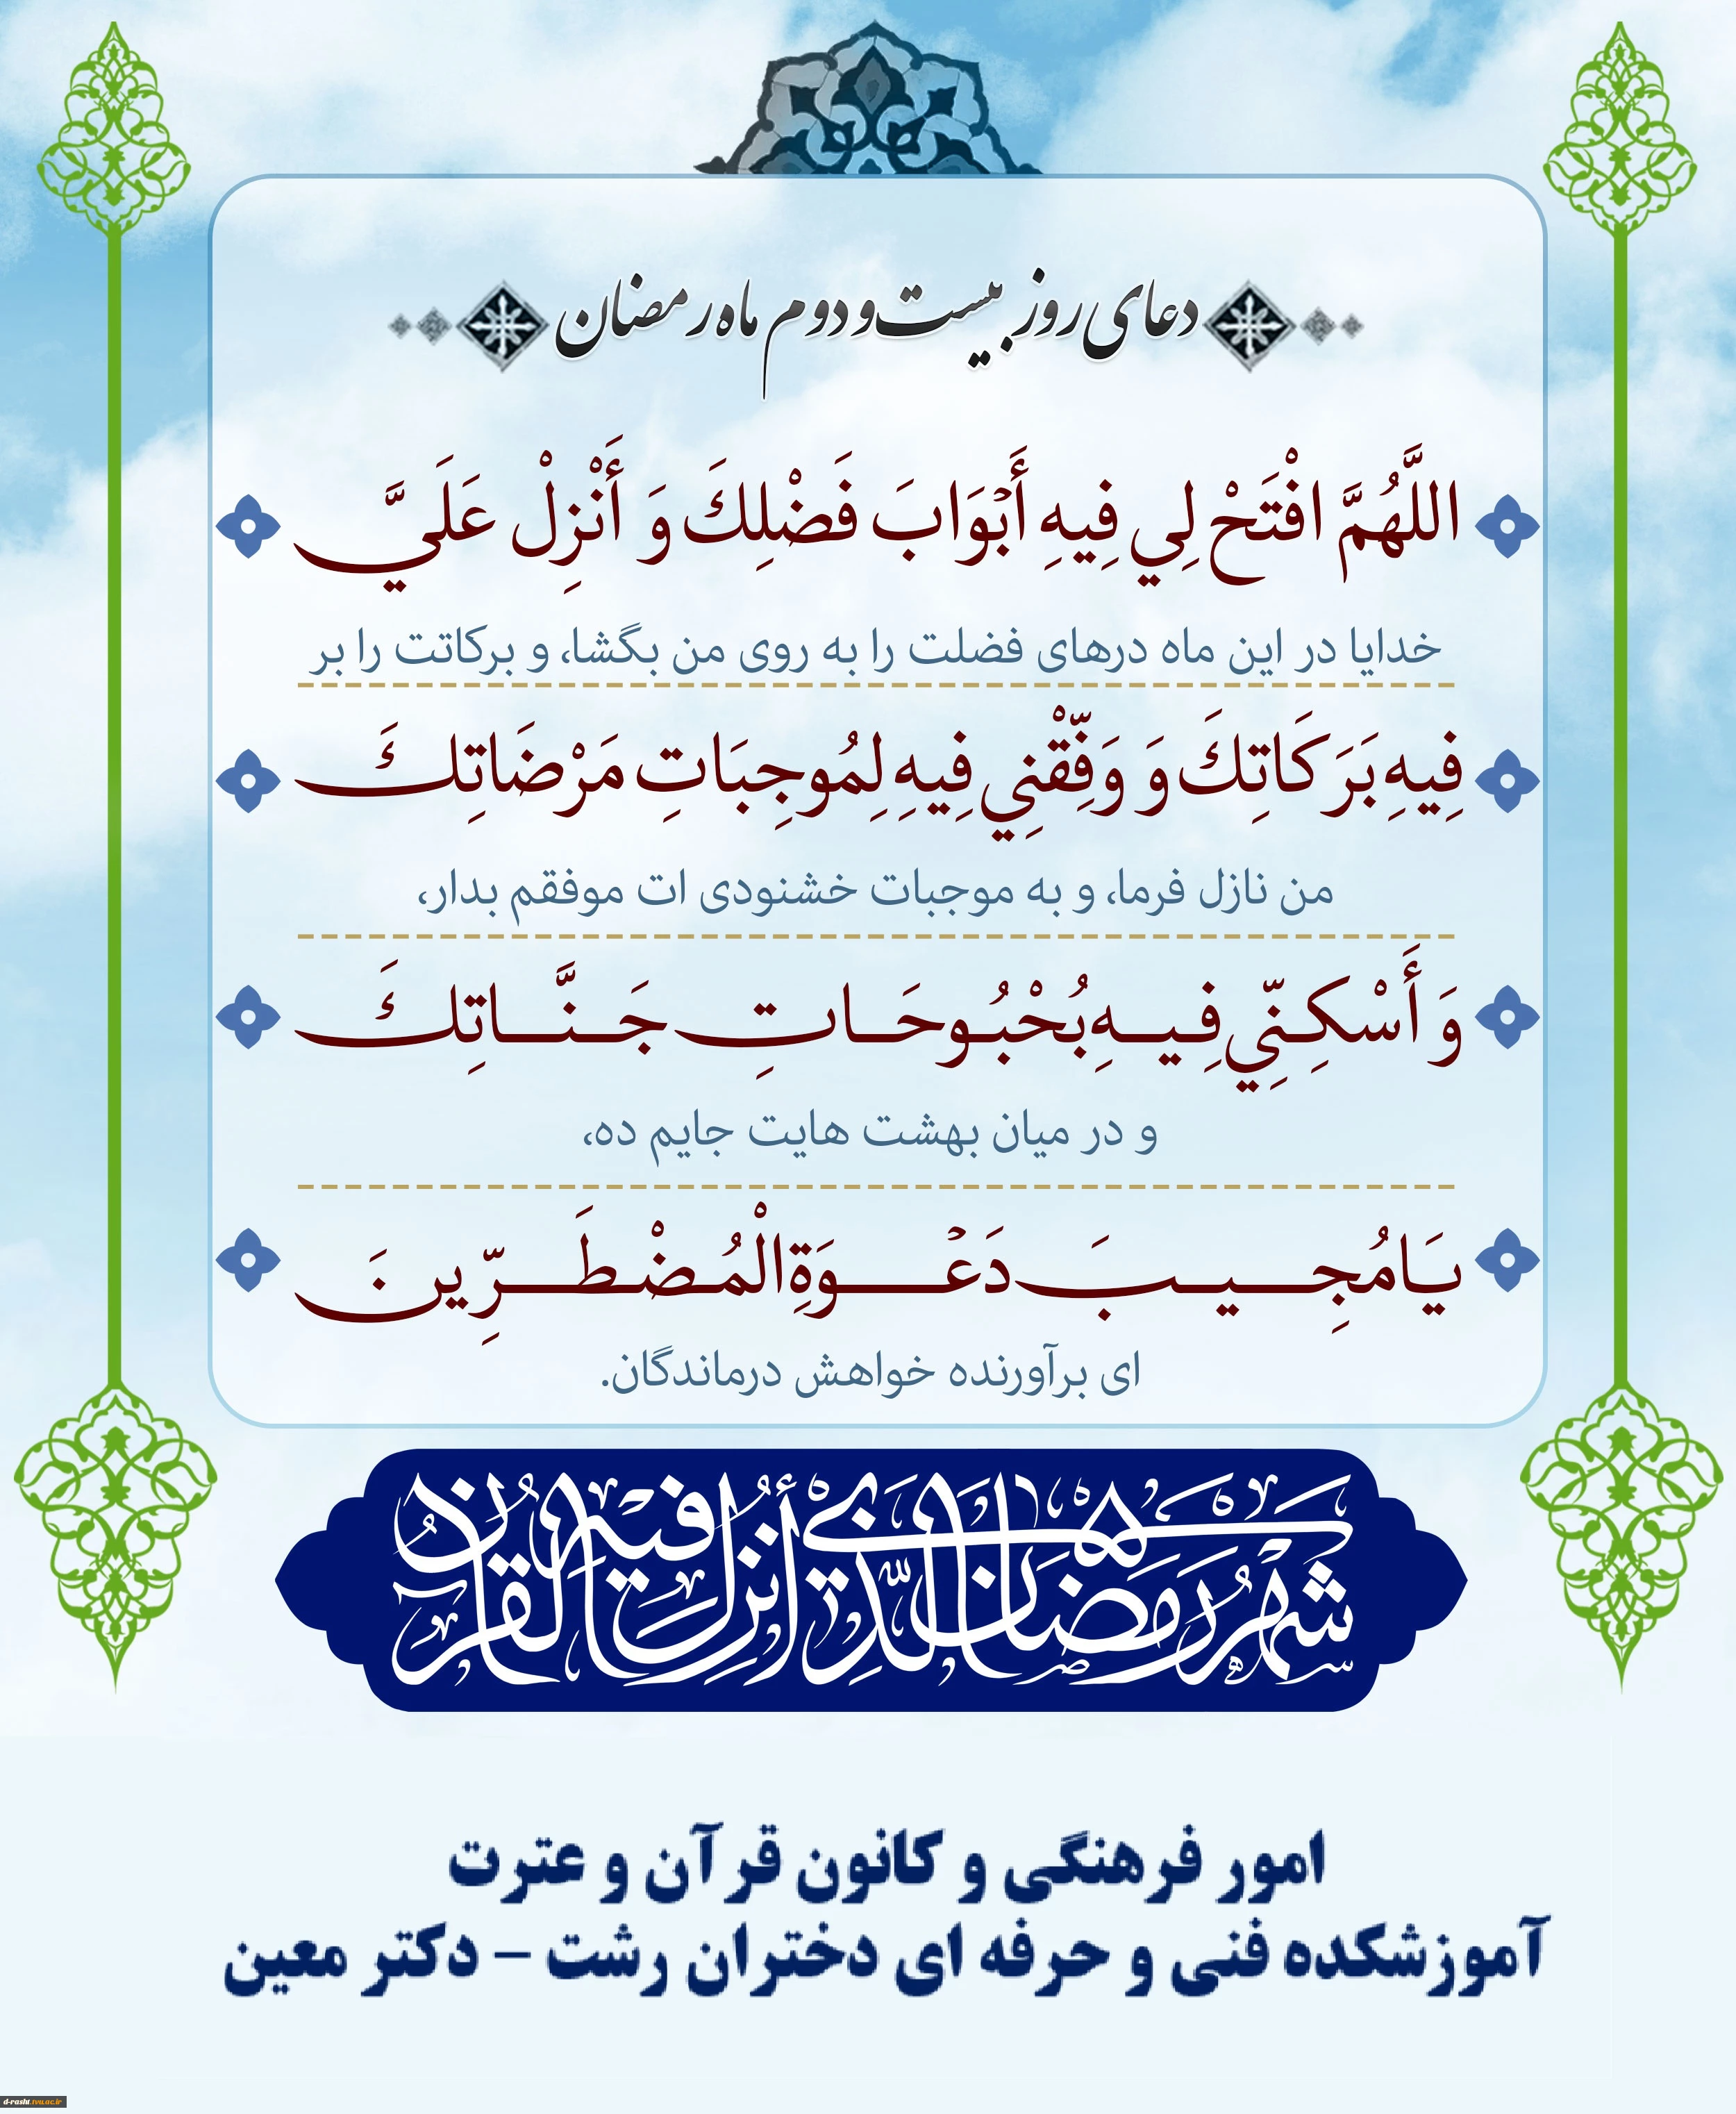 دعای روز بیست و دوم ماه رمضان
اللَّهُمَّ افْتَحْ لِي فِيهِ أَبْوَابَ فَضْلِكَ وَ أَنْزِلْ عَلَيَّ
خدایا در این ماه درهای فضلت را به روی من بگشا، و برکاتت را بر
فِيهِ بَرَكَاتِكَ وَ وَفِّقْنِي فِيهِ لِمُوجِبَاتِ مَرْضَاتِكَ
من نازل فرما، و به موجبات خشنودی ات موفقم بدار،
وَ أَسْكِنِّي فِيهِ بُحْبُوحَاتِ جَنَّاتِكَ
و در میان بهشت هایت جایم ده،
يَا مُجِيبَ دَعْوَةِ الْمُضْطَرِّينَ
ای برآورنده خواهش درماندگان.
شهر رمضان الذي أنزل فيه القرآن
امور فرهنگی و کانون قرآن و عترت
آموزشکده فنی و حرفه ای دختران رشت – دکتر معین
d-rasht.tvu.ac.ir